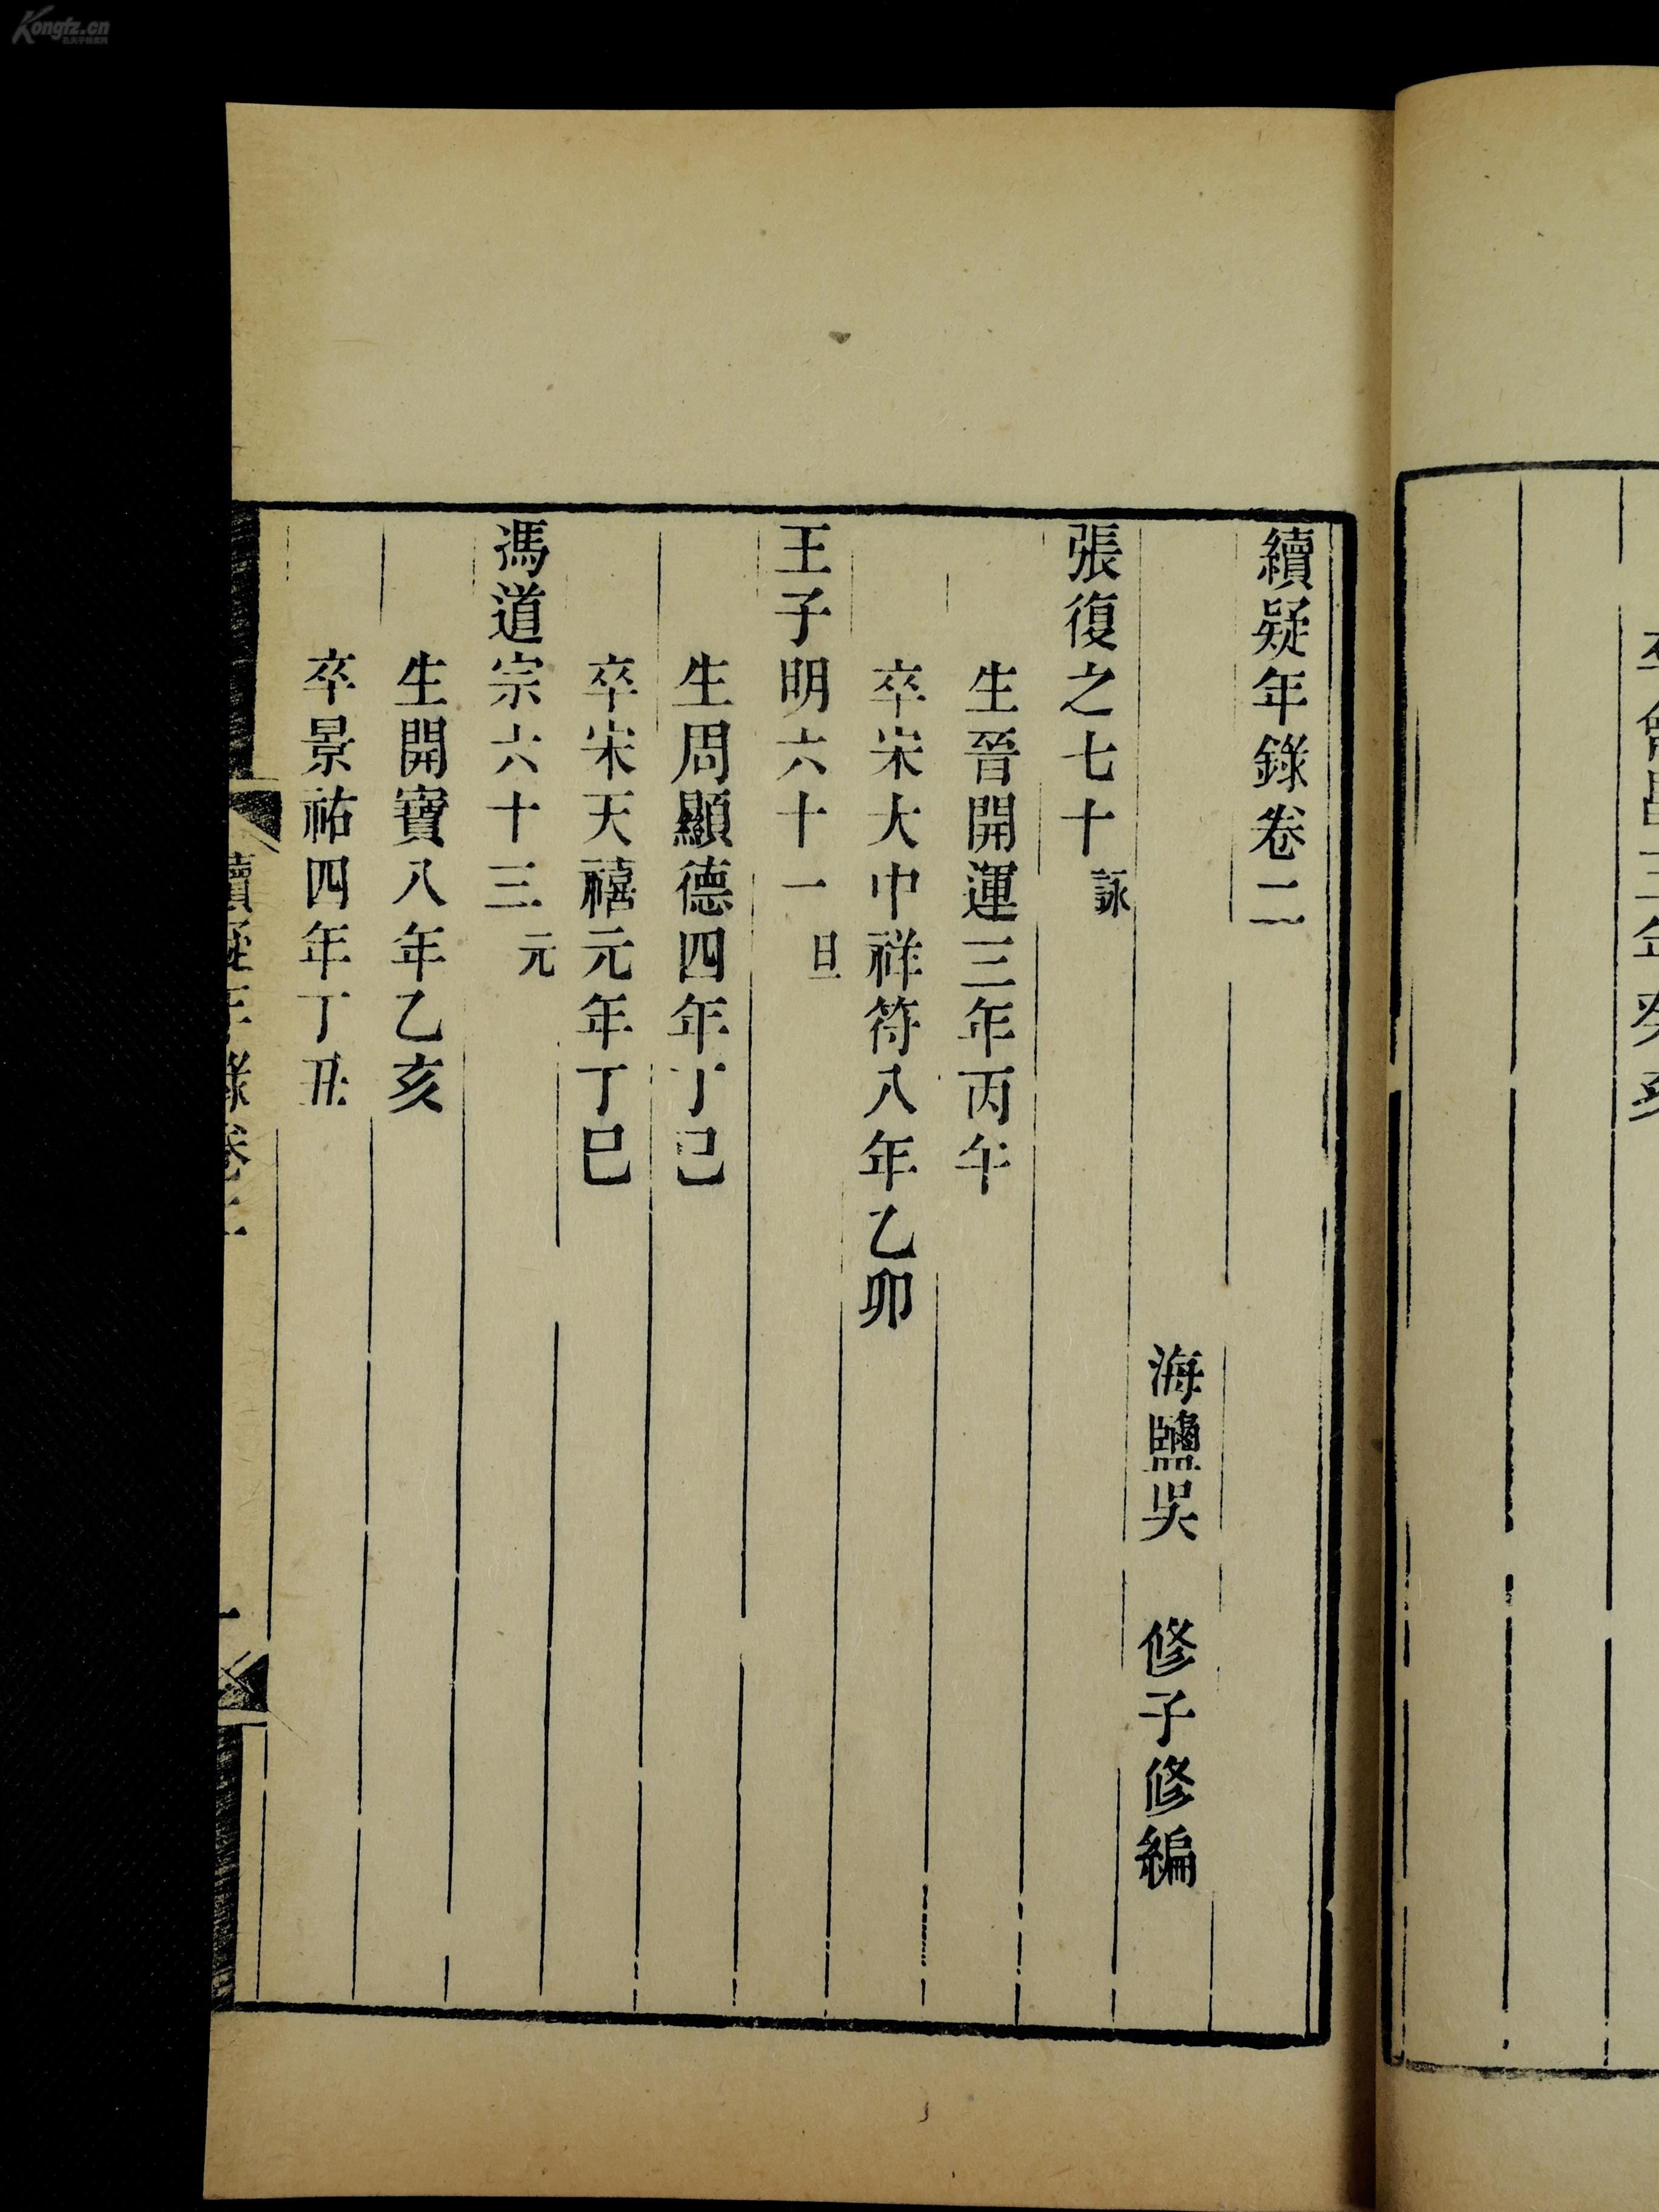 續疑年錄卷二
海鹽吳 修子修編
張復之七十 詠
生晉開運三年丙午
卒宋大中祥符八年乙卯
王子明六十一 旦
生周顯德四年丁巳
卒宋天禧元年丁巳
馮道宗六十三 元
生開寶八年乙亥
卒景祐四年丁丑
續疑年錄卷二
一
Kongfz.cn